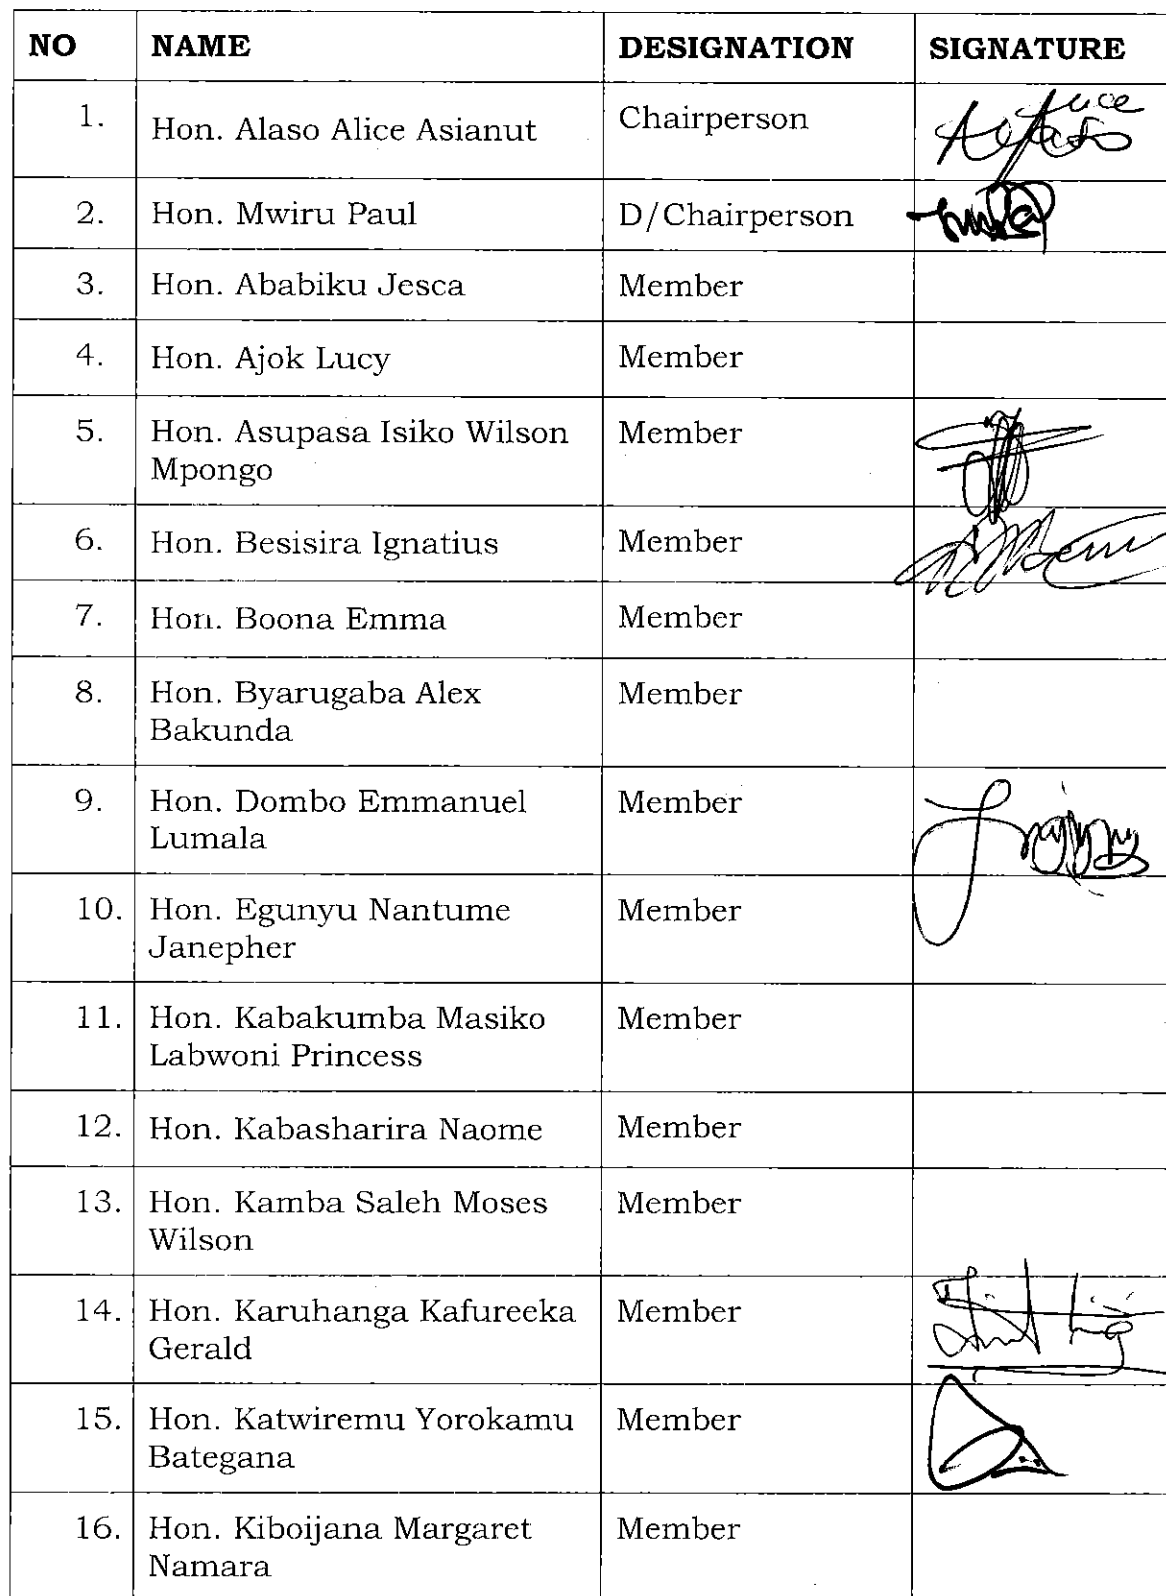 NO NAME DESIGNATION SIGNATURE
1. Hon. Alaso Alice Asianut Chairperson
2. Hon. Mwiru Paul D/Chairperson
3. Hon. Ababiku Jesca Member
4. Hon. Ajok Lucy Member
5. Hon. Asupasa Isiko Wilson Member
Mpongo
6. Hon. Besisira Ignatius Member
7. Hon. Boona Emma Member
8. Hon. Byarugaba Alex Member
Bakunda
9. Hon. Dombo Emmanuel Member
Lumala
10. Hon. Egunyu Nantume Member
Janepher
11. Hon. Kabakumba Masiko Member
Labwoni Princess
12. Hon. Kabasharira Naome Member
13. Hon. Kamba Saleh Moses Member
Wilson
14. Hon. Karuhanga Kafureeka Member
Gerald
15. Hon. Katwiremu Yorokamu Member
Bategana
16. Hon. Kiboijana Margaret Member
Namara